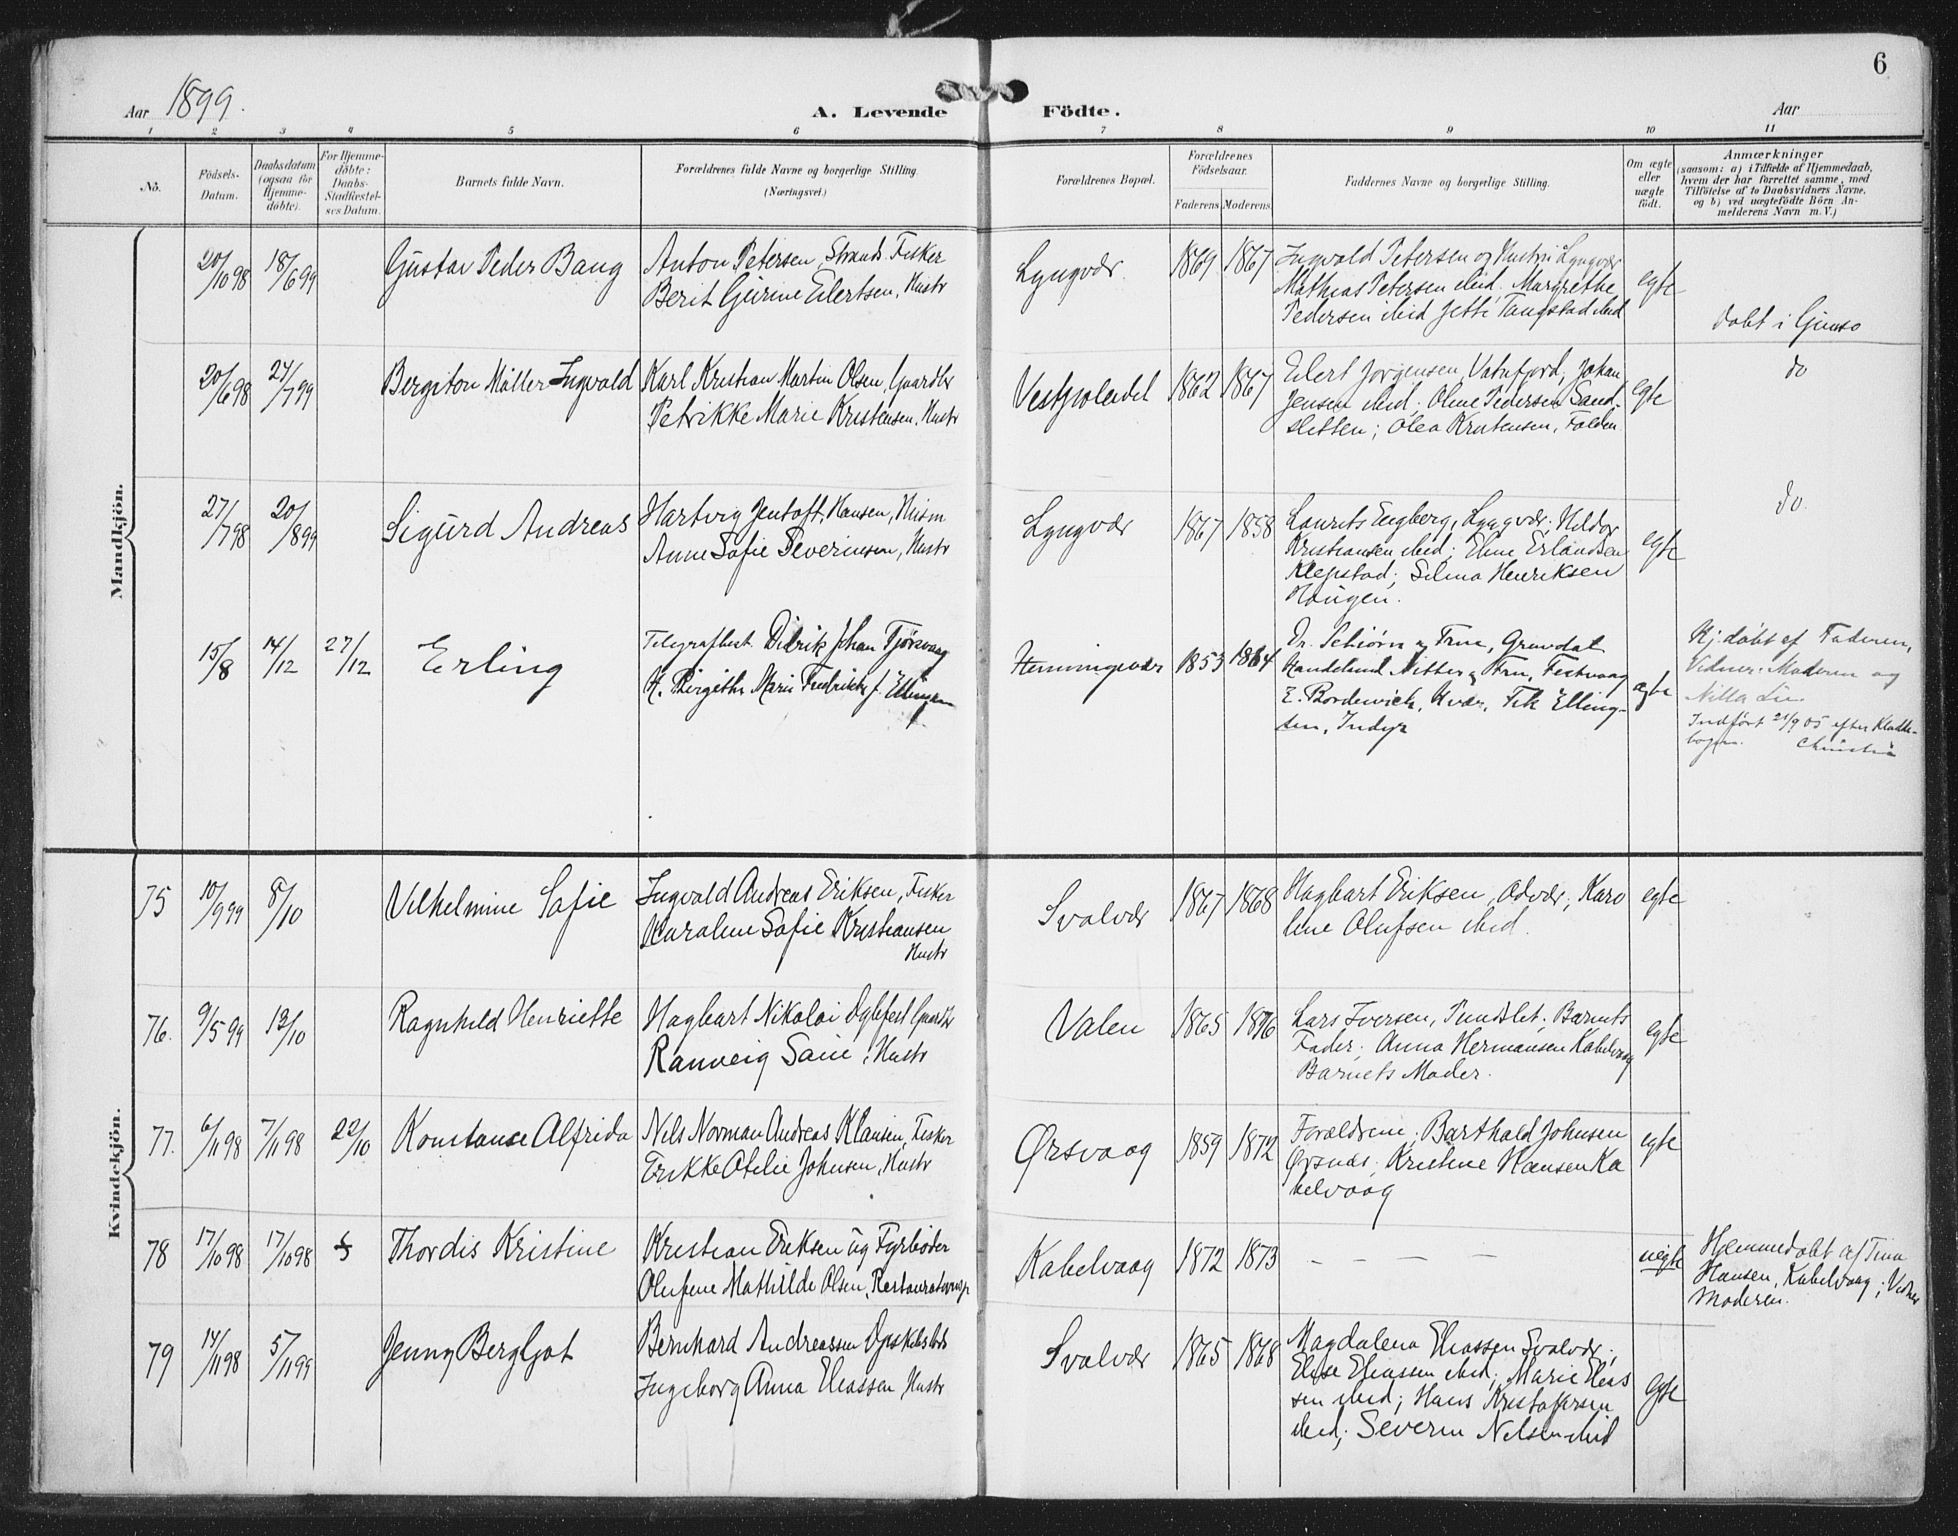 6
Aar 1899.
A. Levende Födte.
Aar
1 2 3 4 5 6 7 8 9 10 11
No.
Födsels-
Datum.
Daabsdatum
(ogsaa for
Hjemme-
döbte).
For Hjemme-
döbte:
Daabs-
Stadfæstel-
ses Datum.
Barnets fulde Navn.
Forældrenes fulde Navne og borgerlige Stilling.
(Næringsvei.)
Forældrenes Bopæl.
Forældrenes
Födselsaar.
Faderens Moderens
Faddernes Navne og borgerlige Stilling.
Om ægte
eller
uægte
födt.
Anmærkninger
(saasom: a) i Tilfælde af Hjemmedaab,
hvem der har forrettet samme, med
Tilföielse af to Daabsvidners Navne,
og b) ved uægtefödte Börn An-
melderens Navn m. V.)
Mandkjön.
20/1098 18/699 Gustav Peder Bang
Anton Petersen, Strands. Fisker
Berit Geirine Eilertsen, Hustr
Lyngvær. 1869 1867
Ingvald Petersen og Hustru Lyngvær
Mathias Petersen ibid. Margrethe
Pedersen ibid Jette Tangstad ibid
egte
døbt i Gimsø
20/698 24/799 Bergiton Müller Ingvald
Karl Kristian Martin Olsen, Gaardbr
Petrikke Marie Kristensen, Hustr
Vestpoldal 1862 1867
Eilert Jørgensen, Vatnfjord; Johan
Jensen ibid; Oline Pedersen Sand-
sletten; Olea Kristensen,
egte
do
27/798 20/899 Sigurd Andreas
Hartvig Jentoft Hansen, Husm
Anne Sofie Severinsen, Hustr
Lyngvær 1867 1858
Laurits Engberg, Lyngvær; Hildor
Kristiansen ibid; Eline Erlandsen
Klepstad; Selma Henriksen
Haugen.
egte
do.
15/8 14/12 27/12 Erling
Telegrafbest. Didrik Johan Fjørsvaag
H. Birgithe Marie Fredrikke f. Ellingsen
Henningsvær 1853 1864
Dr. Schiørn og Frue, Gravdal
Handelsmd Nitter og Frue, Festvaag
E. Bordewich, Hvær, Frk Elling-
sen,
ægte
Hj. døbt af Faderen,
Vidner: Moderen og
Indført 21/9 05 efter Kladde-
bogen.
Kvindekjön.
75 10/999 8/10 Vilhelmine Sofie
Ingvald Andreas Eriksen, Fisker
Karoline Sofie Kristiansen
Hustr
Svolvær 1867 1868
Hagbart Eriksen, Odvær; Karo
line Olufsen ibid.
egte
76. 9/599 13/10 Ragnhild Henriette
Hagbart Nikolai Dybfest Gaardbr
Ranveig Saue, Hustr
Valen 1865 1876
Lars Iversen, Sundslet; Barnets
Fader; Anna Hermansen Kabelvaag
Barnets Moder.
egte
77. 6/1198 7/1198 22/10 Konstanse Alfrida
Nils Norman Andreas Klausen, Fisker
Erikke Otelie Johnsen, Hustr
Ørsvaag 1859 1872
Forældrene; Barthold Johnsen
Ørsnes; Kristine Hansen Ka
belvaag
egte
78 17/1098 17/1098 Thordis Kristine
Kristian Eriksen ug Fyrbøder
Olufine Mathilde Olsen,
Kabelvaag 1872 1873
— — — —
uegte
Hjemmedøbt af Tina
Hansen, Kabelvaag; Vidner
Moderen.
79 14/1198 5/1199 Jenny Bergljot
Bernhard Andreassen
Ingeborg Anna Eliassen Hustr
Svolvær 1865 1868
Magdalena Eliassen Svolvær;
Else Eliassen ibid; Marie Elias
sen ibid; Hans Kristoffersen
ibid; Severin Nilsen ibid
egte